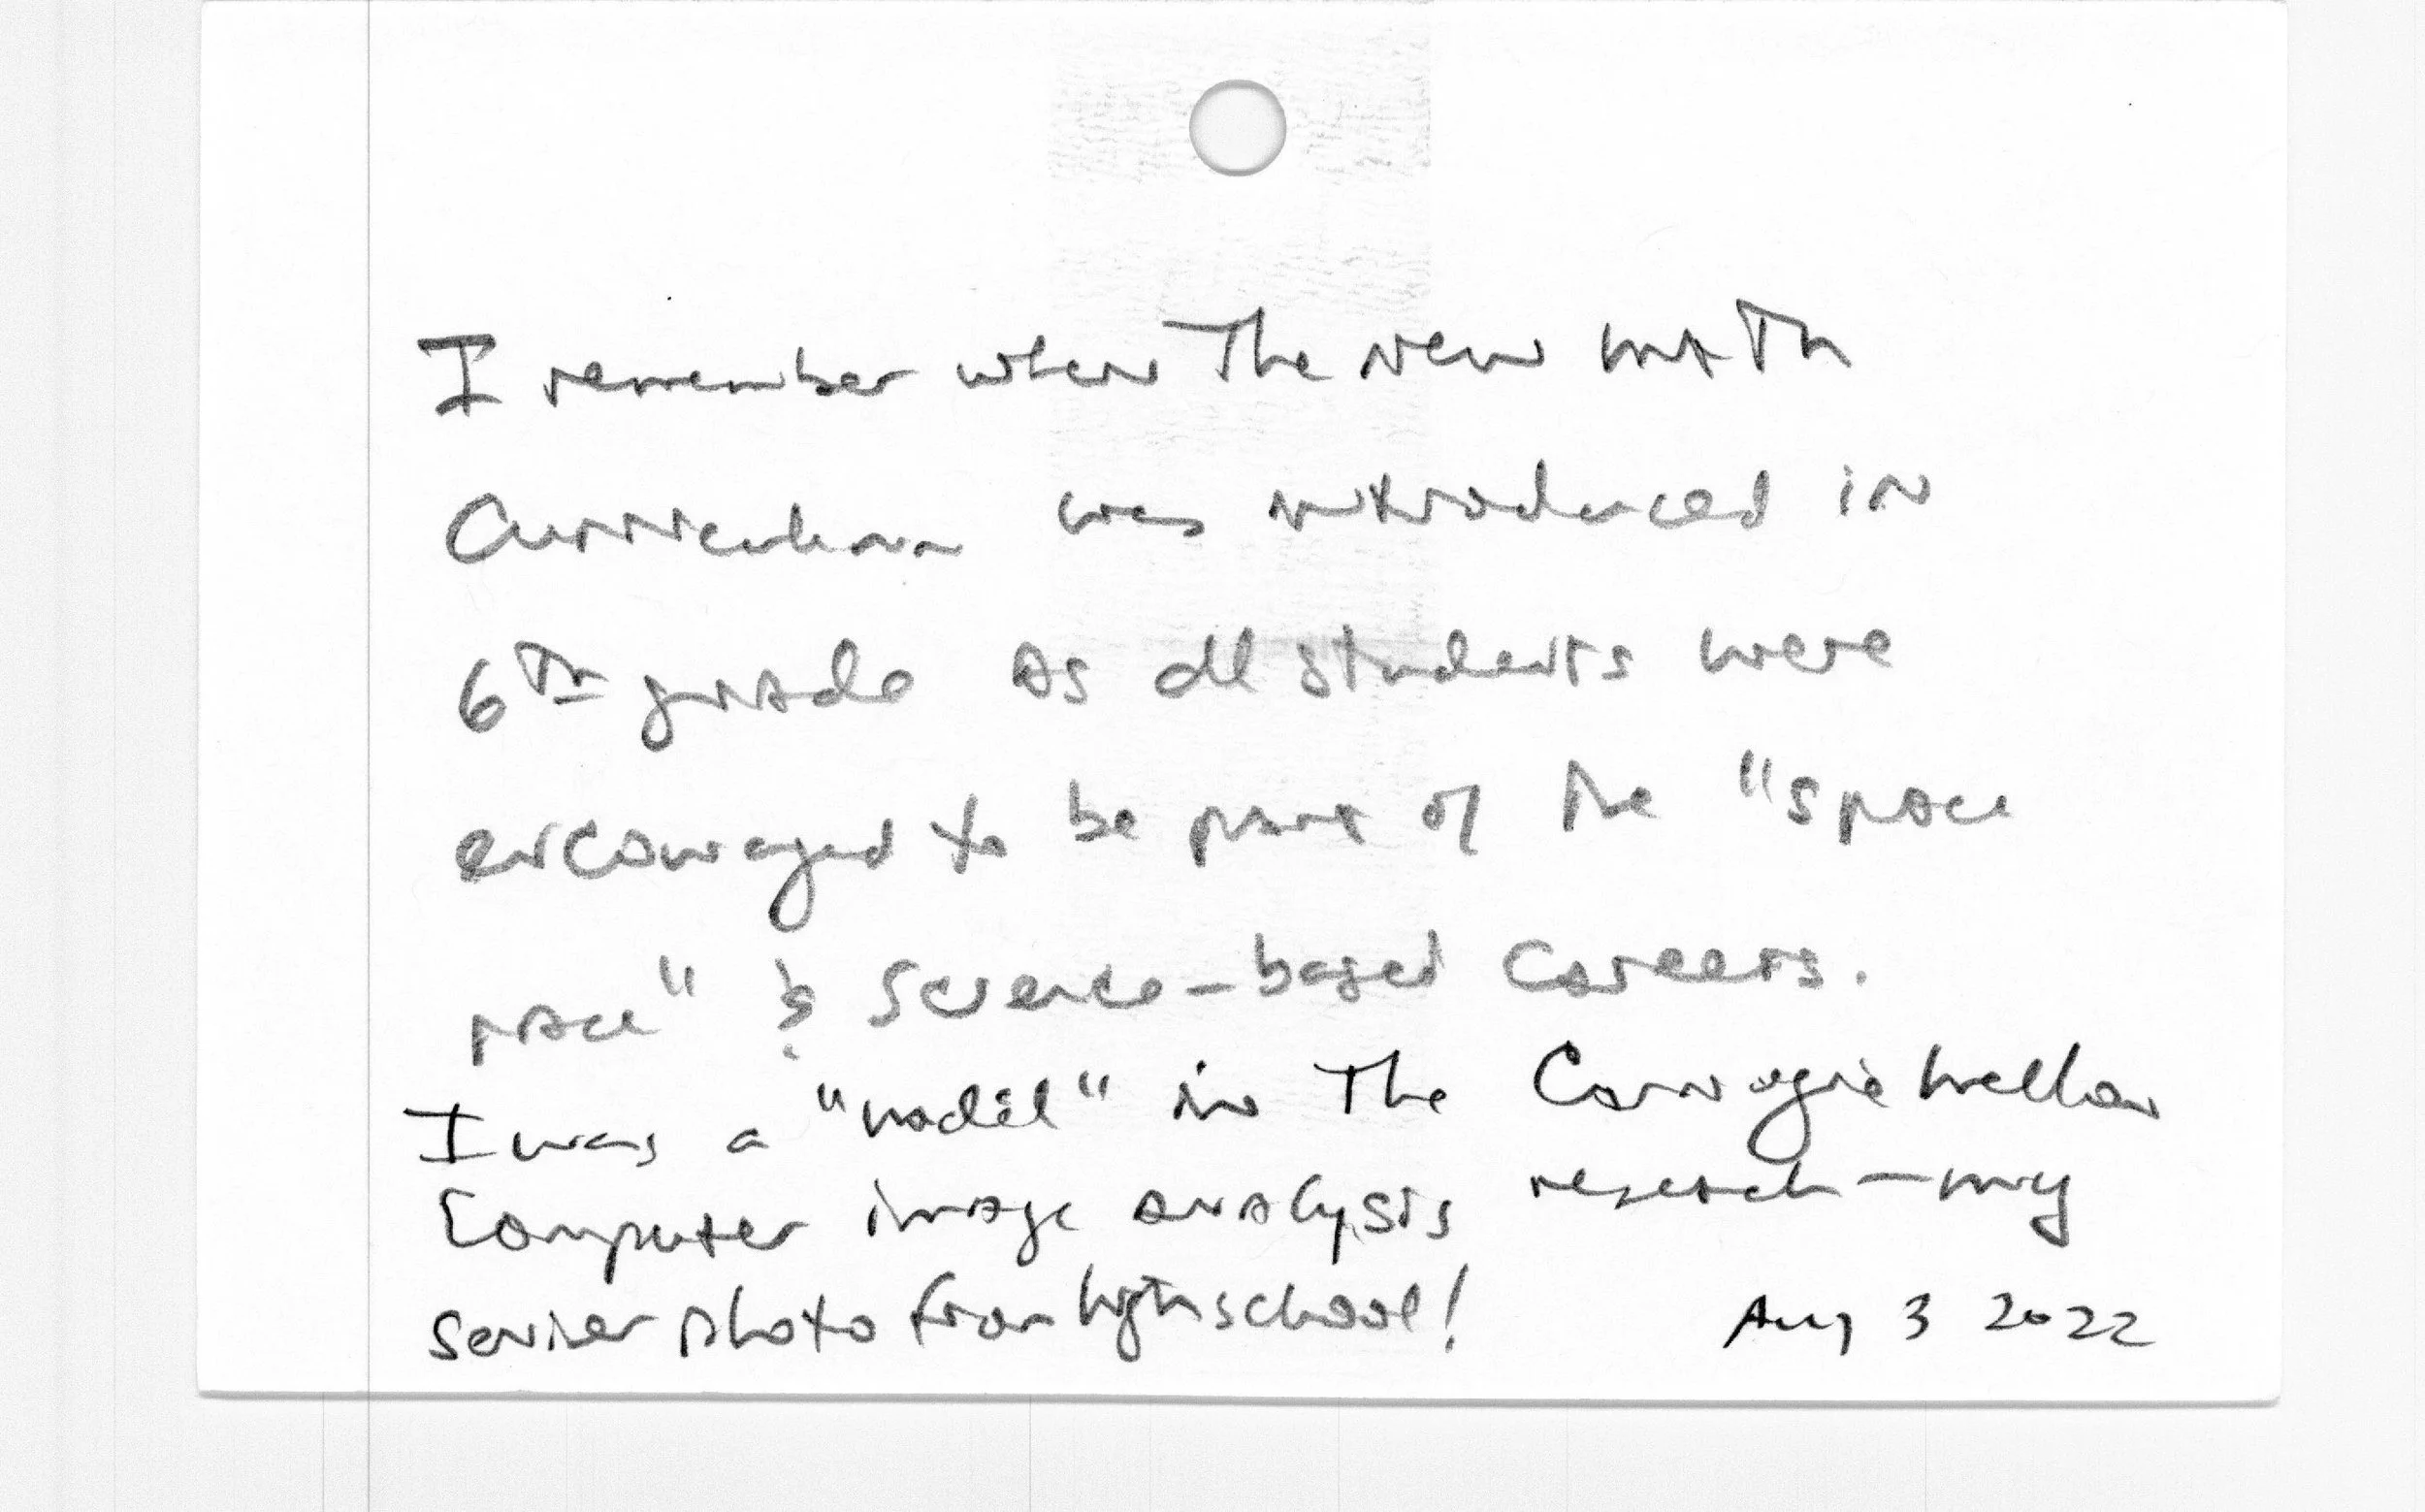 I remember when the new math
Curriculum was introduced in
6th grade as all students were
encouraged to be part of the "space
race" & Science-based careers.
I was a "model" in the Carnegie Mellon
Computer image analysis research - my
senior photo from high school!
Aug 3 2022